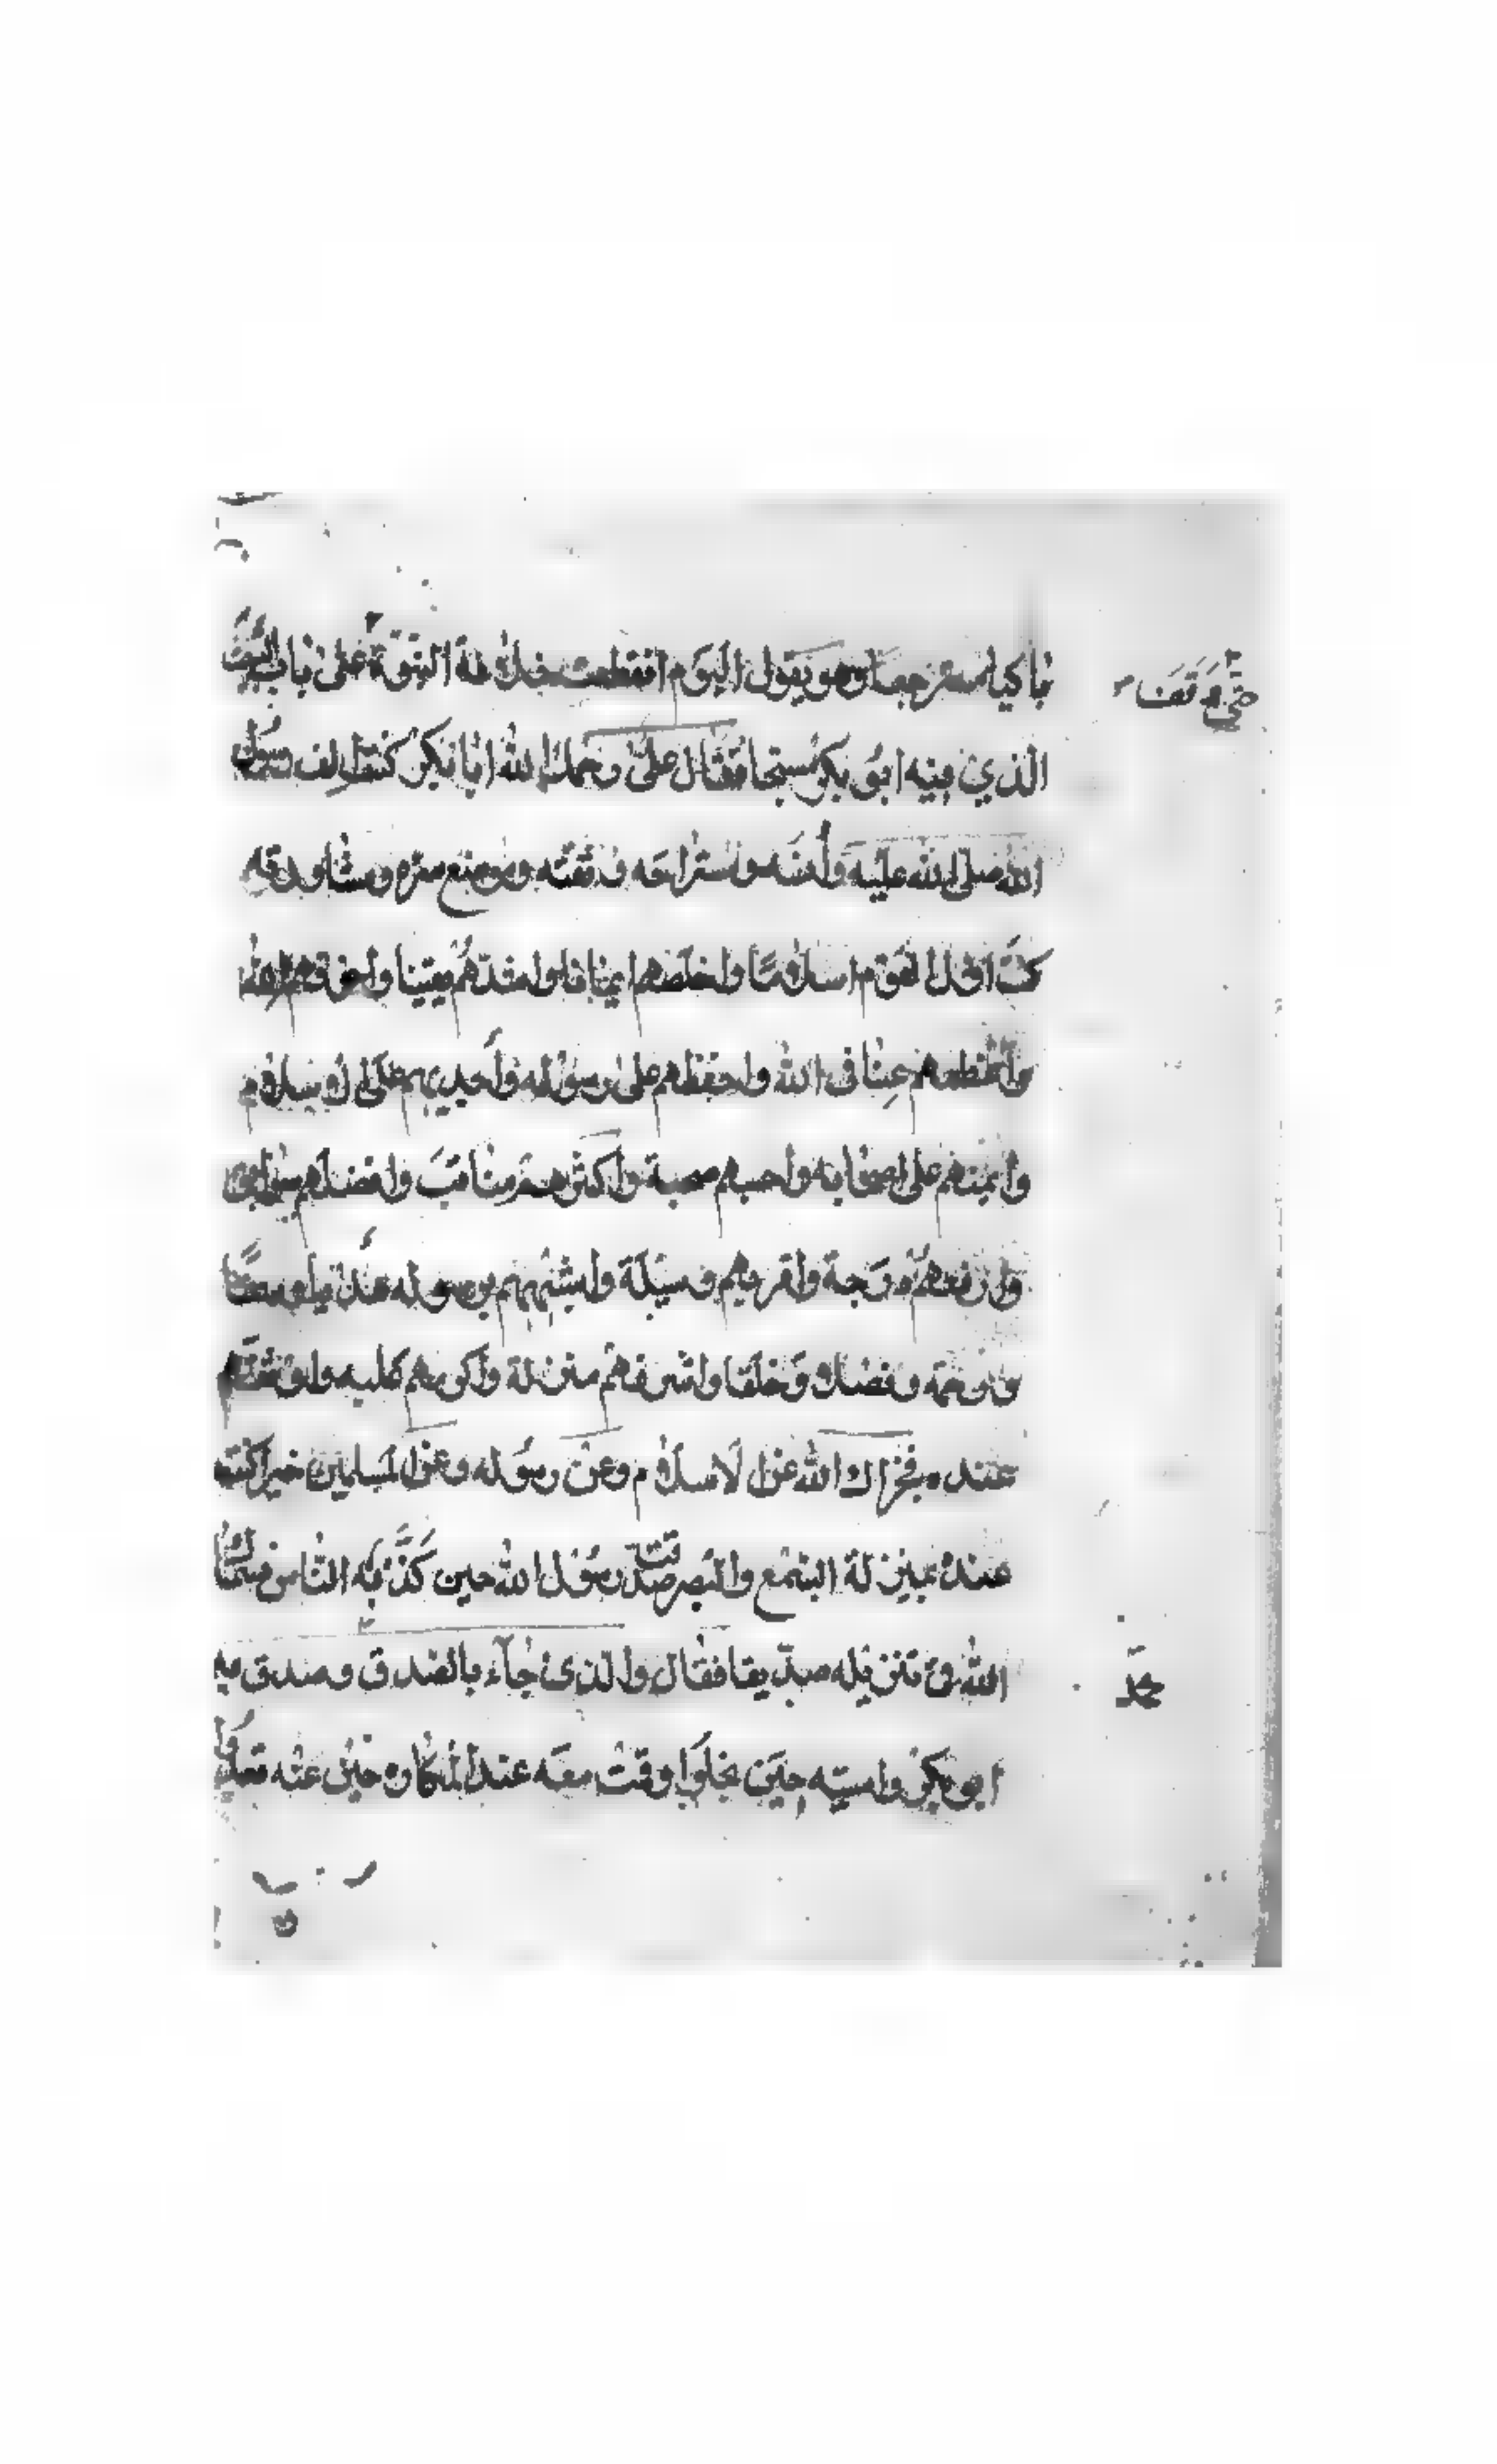 باكيا مسترجعا وهو يقول اليوم انقطعت خلافة النبوة على باب البيت
حتى وقف
الذي فيه ابو بكر مسجا فقال على رحمك الله ابا بكر كنت الف رسول
الله صلى الله عليه وأنسه واستراحه وثقته وموضع سره ومشاورته
كنت اول القوم اسلاما واخلصهم ايمانا واشدهم يقينا واخوفهم لله
وأعظمهم عنا في الله واحفظهم على رسوله وأحدبهم على الاسلام
وأيمنهم على اصحابه واحسنهم صحبة واكثرهم مناقب وافضلهم سوابق
وارفعهم درجة واقربهم وسيلة واشبههم برسوله هديا وسمتا
ورحمة وفضلا وخلقا واشرفهم منزلة واكرمهم عليه واوثقهم
عنده فجزاك الله عن الاسلام وعن رسوله وعن المسلمين خيرا كنت
عنده بمنزلة السمع والبصر صدقت رسول الله حين كذبه الناس فسماك
الله في تنزيله صديقا فقال والذي جآء بالصدق وصدق به
محمد
ابو بكر واسيته حين بخلوا وقمت معه عند المكاره حين عنه قعدوا